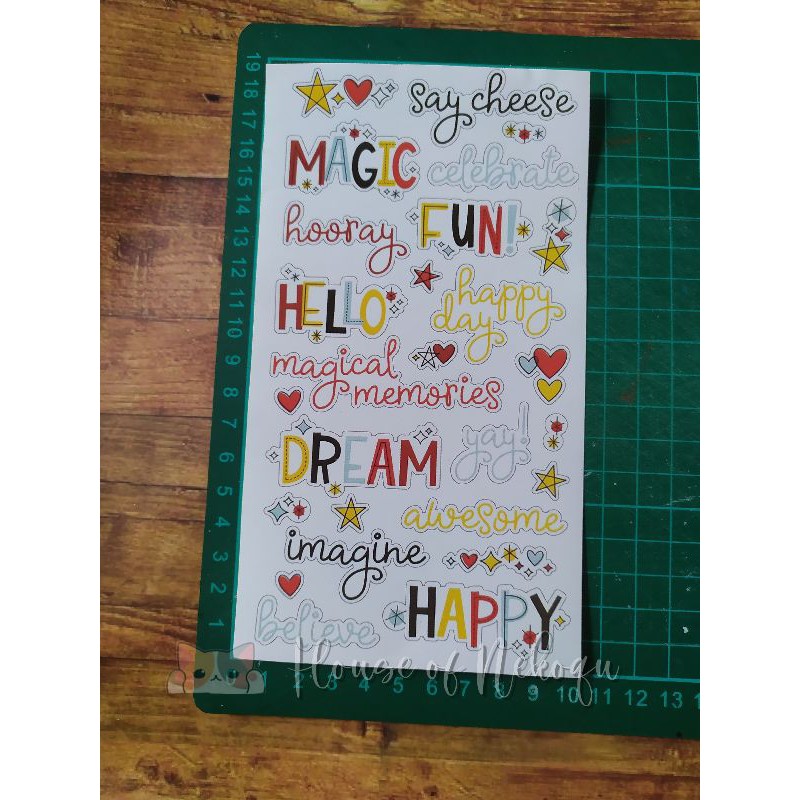 say cheese
MAGIC celebrate
hooray FUN!
HELLO happy day
magical memories
DREAM yay!
awesome
imagine
believe HAPPY
House of Nekoqu
19 18 17 16 15 14 13 12 11 10 9 8 7 6 5 4 3 2 1
1 2 3 4 5 6 7 8 9 10 11 12 13